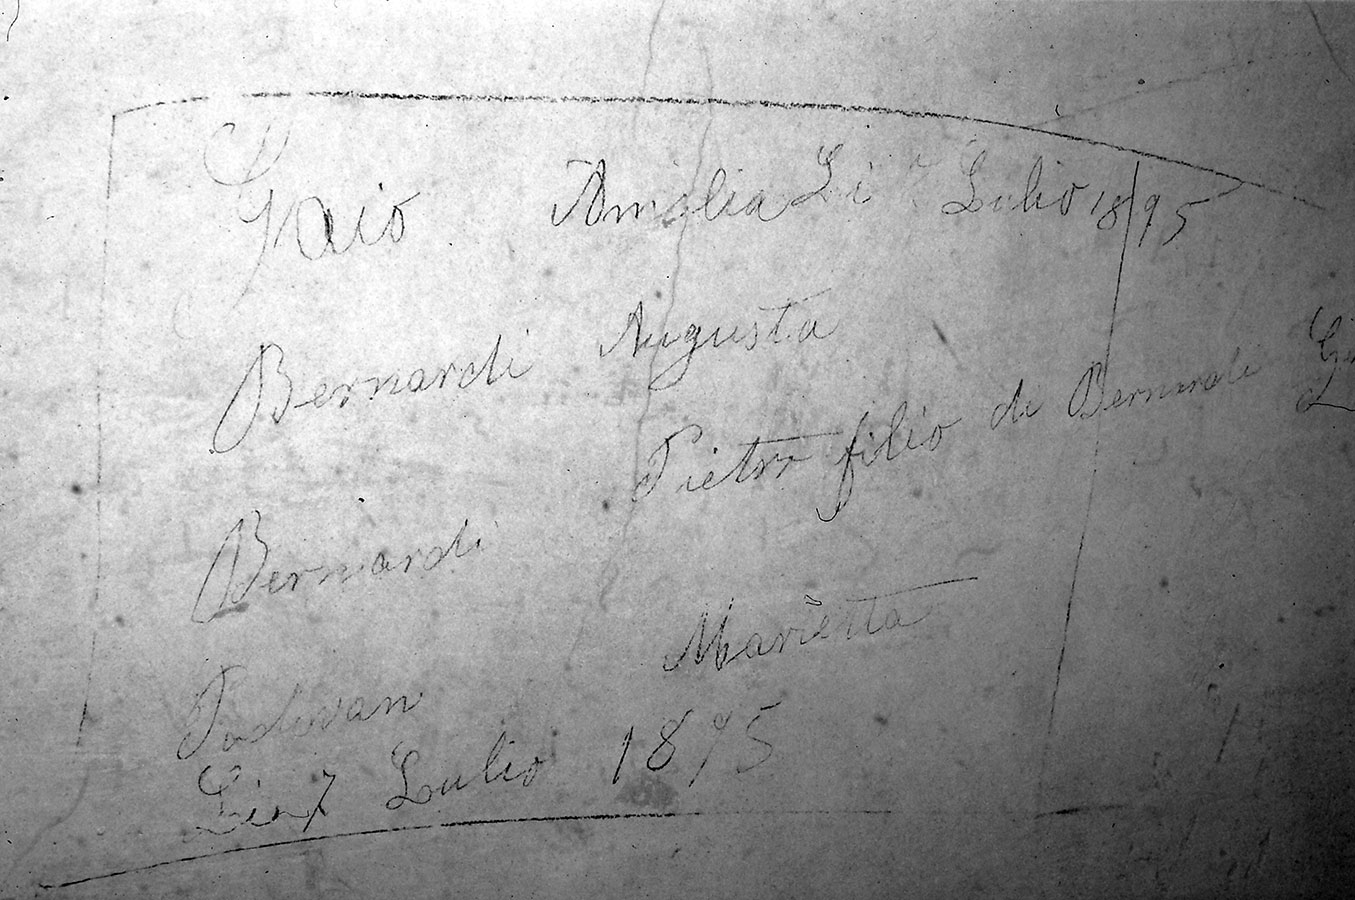 Gaio Amelia Li 7 Lulio 1895
Bernardi Augusta
Bernardi Pietro filio di Bernardi
Padovan Marietta
Li 7 Lulio 1895